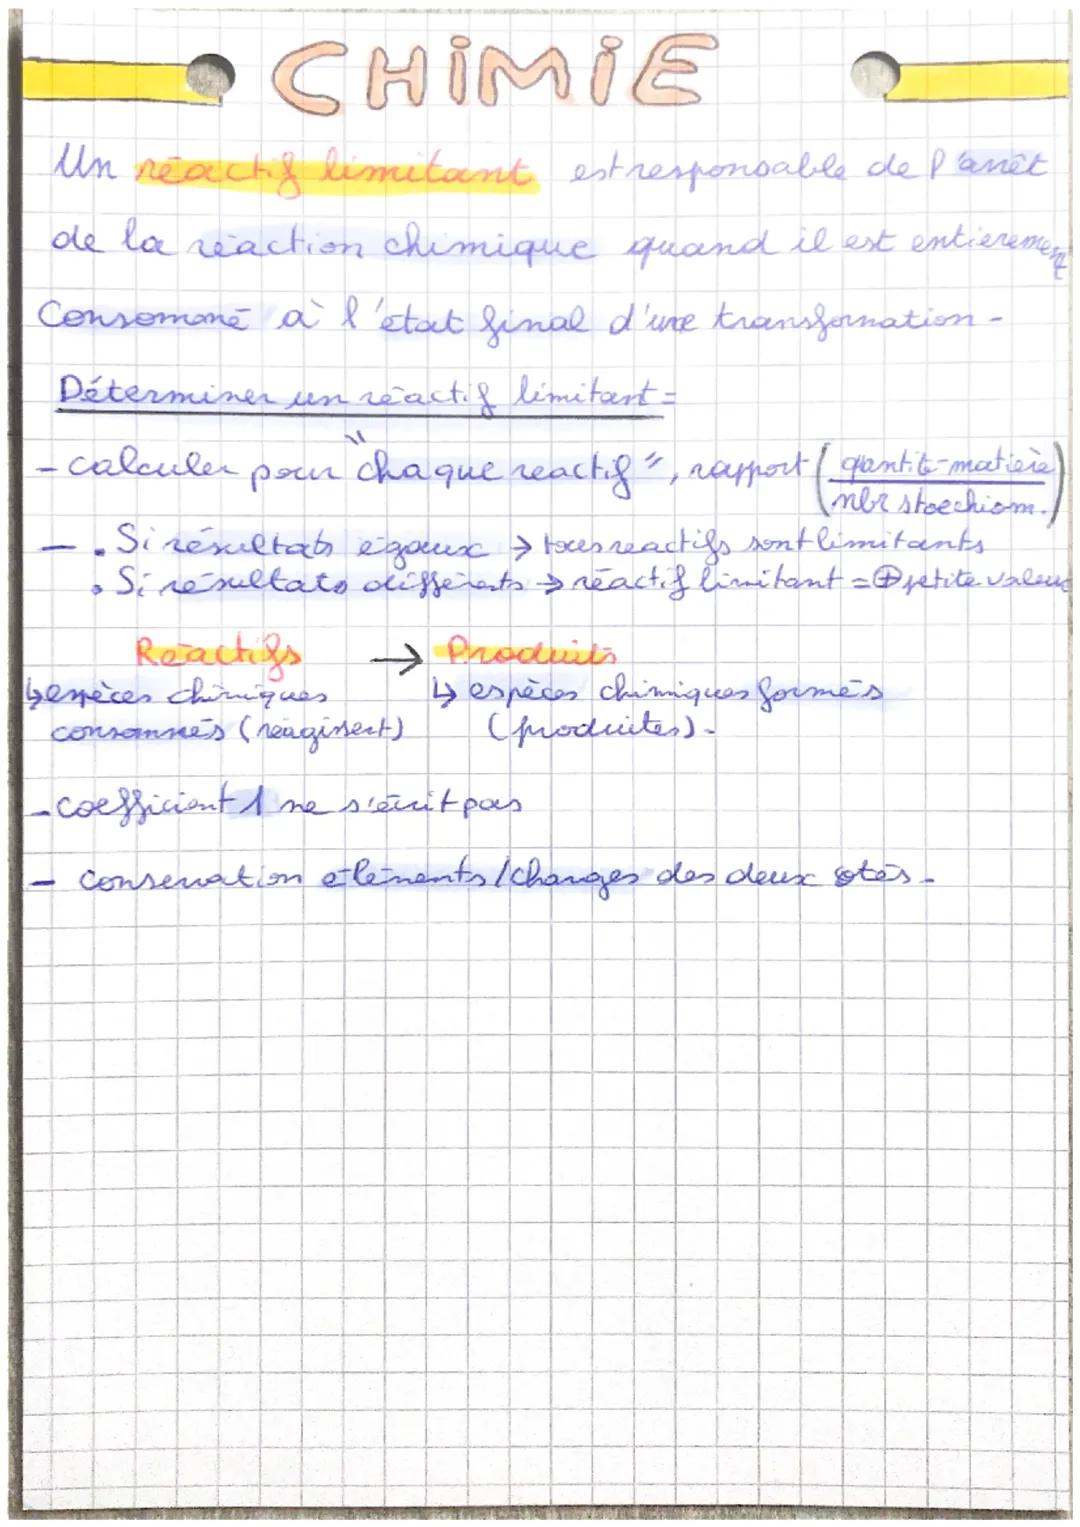 CHiMiE
Un réactif limitant est responsable de l'arrêt
de la réaction chimique quand il est entierement
Consommé à l'état final d'une transformation -
Déterminer un réactif limitant =
- calculer pour "chaque reactif", rapport (qantité-matière / nbr stoechiom.)
- . Si résultats égaux → tous reactifs sont limitants
. Si résultats différents → réactif limitant = ⊕ petite valeur
Réactifs → Produits
↳ espèces chimiques ↳ espèces chimiques formés
consommés (réagissent) (produites).
- coefficient 1 ne s'écrit pas
- conservation éléments / charges des deux côtés -